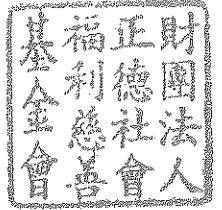 財團法人
正德社會
福利慈善
基金會